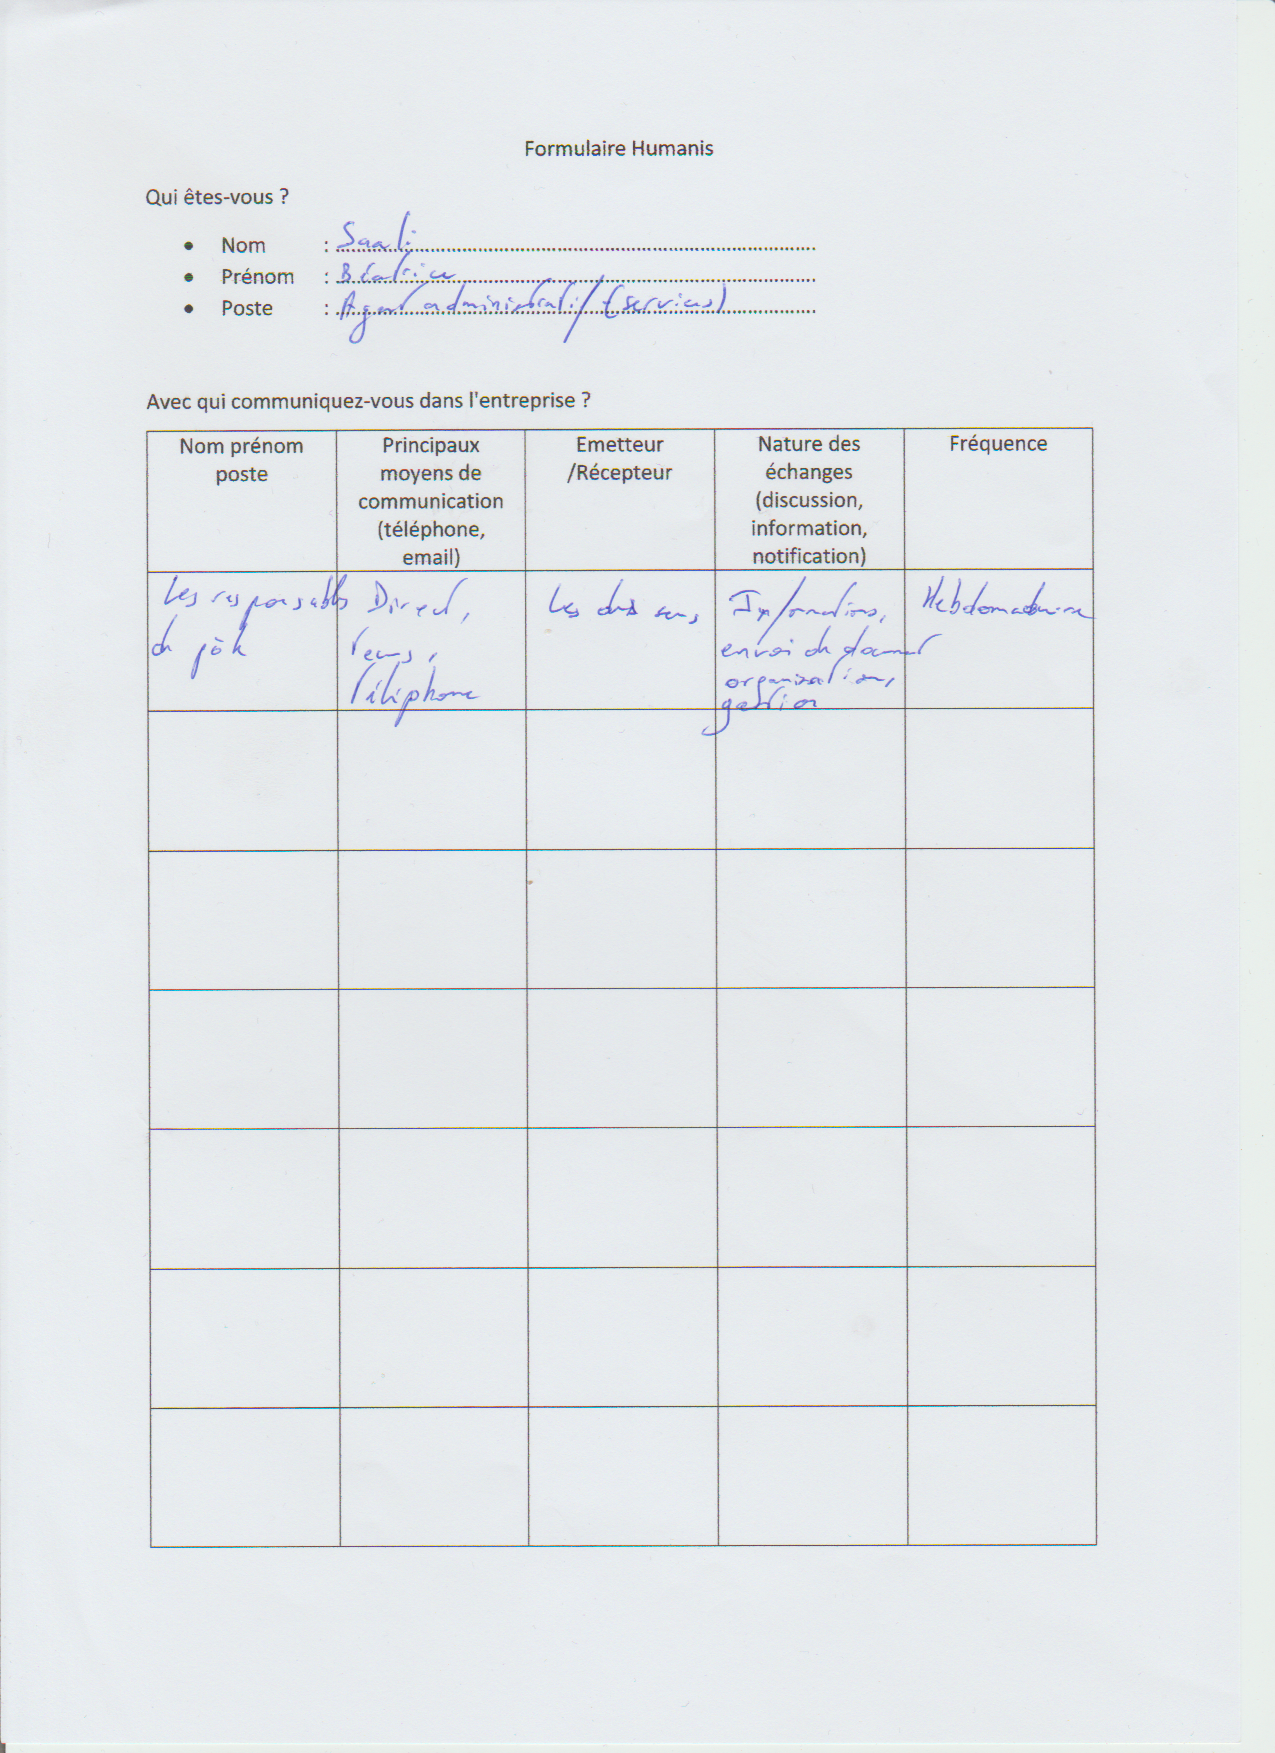 Formulaire Humanis
Qui êtes-vous ?
• Nom : Saali
• Prénom : Béatrice
• Poste : Agent administratif (services)
Avec qui communiquez-vous dans l'entreprise ?
Nom prénom
poste
Principaux
moyens de
communication
(téléphone,
email)
Emetteur
/Récepteur
Nature des
échanges
(discussion,
information,
notification)
Fréquence
Les responsables
de pôle
Direct,
Téléphone
Les deux sens
Informations,
envoi de
organisation,
gestion
Hebdomadaire